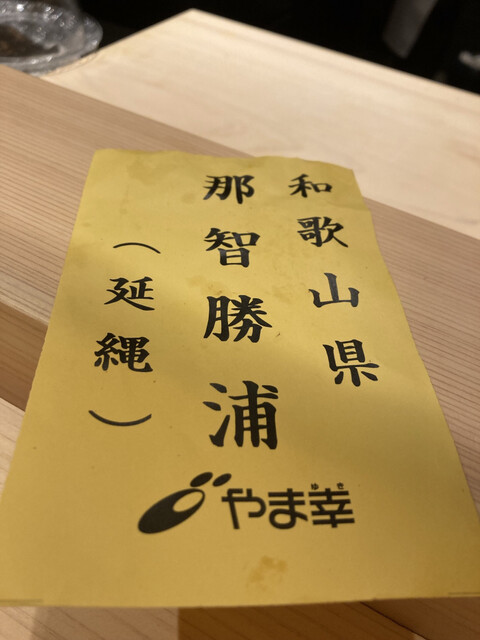 和歌山県
那智勝浦
（延縄）
やま幸
ゆき